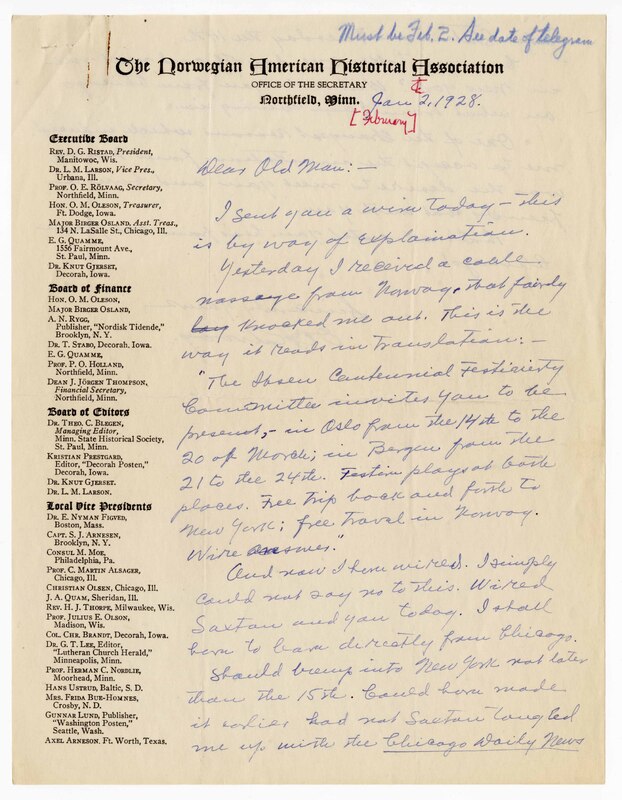 Must be Feb. 2. See date of telegram
The Norwegian American Historical Association
OFFICE OF THE SECRETARY
Northfield, Minn. Jan 2, 1928.
[February]
Executive Board
REV. D. G. RISTAD, President,
Manitowoc, Wis.
DR. L. M. LARSON, Vice Pres.,
Urbana, Ill.
PROF. O. E. RÖLVAAG, Secretary,
Northfield, Minn.
HON. O. M. OLESON, Treasurer,
Ft. Dodge, Iowa.
MAJOR BIRGER OSLAND, Asst. Treas.,
134 N. LaSalle St., Chicago, Ill.
E. G. QUAMME,
1556 Fairmount Ave.,
St. Paul, Minn.
DR. KNUT GJERSET,
Decorah, Iowa.
Board of Finance
HON. O. M. OLESON,
MAJOR BIRGER OSLAND,
A. N. RYGG,
Publisher, "Nordisk Tidende,"
Brooklyn, N. Y.
DR. T. STABO, Decorah, Iowa.
E. G. QUAMME,
PROF. P. O. HOLLAND,
Northfield, Minn.
DEAN J. JÖRGEN THOMPSON,
Financial Secretary,
Northfield, Minn.
Board of Editors
DR. THEO. C. BLEGEN,
Managing Editor,
Minn. State Historical Society,
St. Paul, Minn.
KRISTIAN PRESTGARD,
Editor, "Decorah Posten,"
Decorah, Iowa.
DR. KNUT GJERSET.
DR. L. M. LARSON.
Local Vice Presidents
DR. E. NYMAN FIGVED,
Boston, Mass.
CAPT. S. J. ARNESEN,
Brooklyn, N. Y.
CONSUL M. MOE,
Philadelphia, Pa.
PROF. C. MARTIN ALSAGER,
Chicago, Ill.
CHRISTIAN OLSEN, Chicago, Ill.
J. A. QUAM, Sheridan, Ill.
REV. H. J. THORPE, Milwaukee, Wis.
PROF. JULIUS E. OLSON,
Madison, Wis.
COL. CHR. BRANDT, Decorah, Iowa.
DR. G. T. LEE, Editor,
"Lutheran Church Herald,"
Minneapolis, Minn.
PROF. HERMAN C. NORDLIE,
Moorhead, Minn.
HANS USTRUD, Baltic, S. D.
MRS. FRIDA BUE-HOMNES,
Crosby, N. D.
GUNNAR LUND, Publisher,
"Washington Posten,"
Seattle, Wash.
AXEL ARNESON, Ft. Worth, Texas.
Dear Old Man:—
I sent you a wire today – this
is by way of explaination.
Yesterday I received a cable
massage from Norway, that fairly
knocked me out. This is the
way it reads in translation:—
"The Ibsen Centennial Festicierty
Committee invites you to be
present,– in Oslo from the 14th to the
20 of March; in Bergen from the
21 to the 24th. Festive plays at both
places. Free trip back and forth to
New York; free travel in Norway.
Wire answer."
And now I have wired. I simply
could not say no to this. Wired
Saxton and you today. I shall
have to leave directly from Chicago.
Should bump into New York not later
than the 15th. Could have made
it earlier had not Saxton tangled
me up with the Chicago Daily News